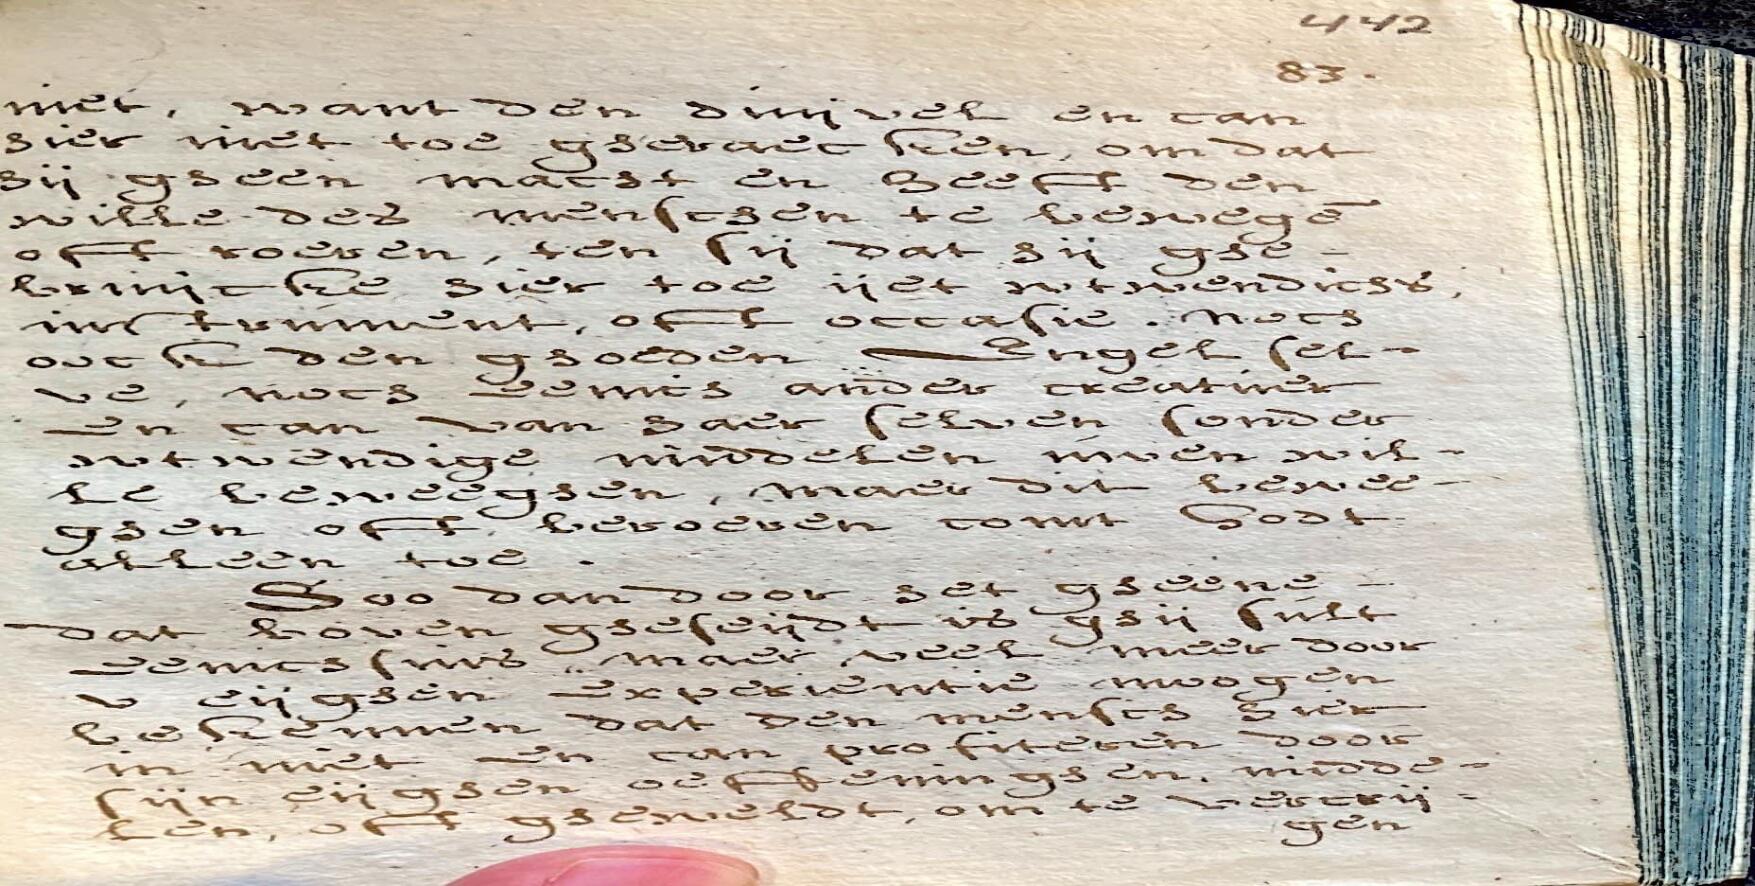 442
83.
niet, want den duijvel en can
hier niet toe gheraecken, om dat
hij gheen macht en heeft den
wille des menschen te bewegē
oft roeren, ten sij dat hij ghe-
bruijcke hier toe ijet wtwendichs,
instrument, oft occasie. noch
oock den ghoeden Engel sel-
ve, noch eenich ander creatuer
en can van haer selven sonder
wtwendige middelen uwen wil-
le beweeghen, maer dit bewee-
ghen oft beroeren comt Godt
alleen toe.
Soo dan door het gheene
dat boven gheseijdt is ghij sult
eenichsins, maer veel meer door
v eijghen experientie moogen
bekennen dat den mensch hier
in niet en can profiteren door
sijn eijghen oeffeninghen, midde-
len, oft gheweldt, om te vercrij-
gen